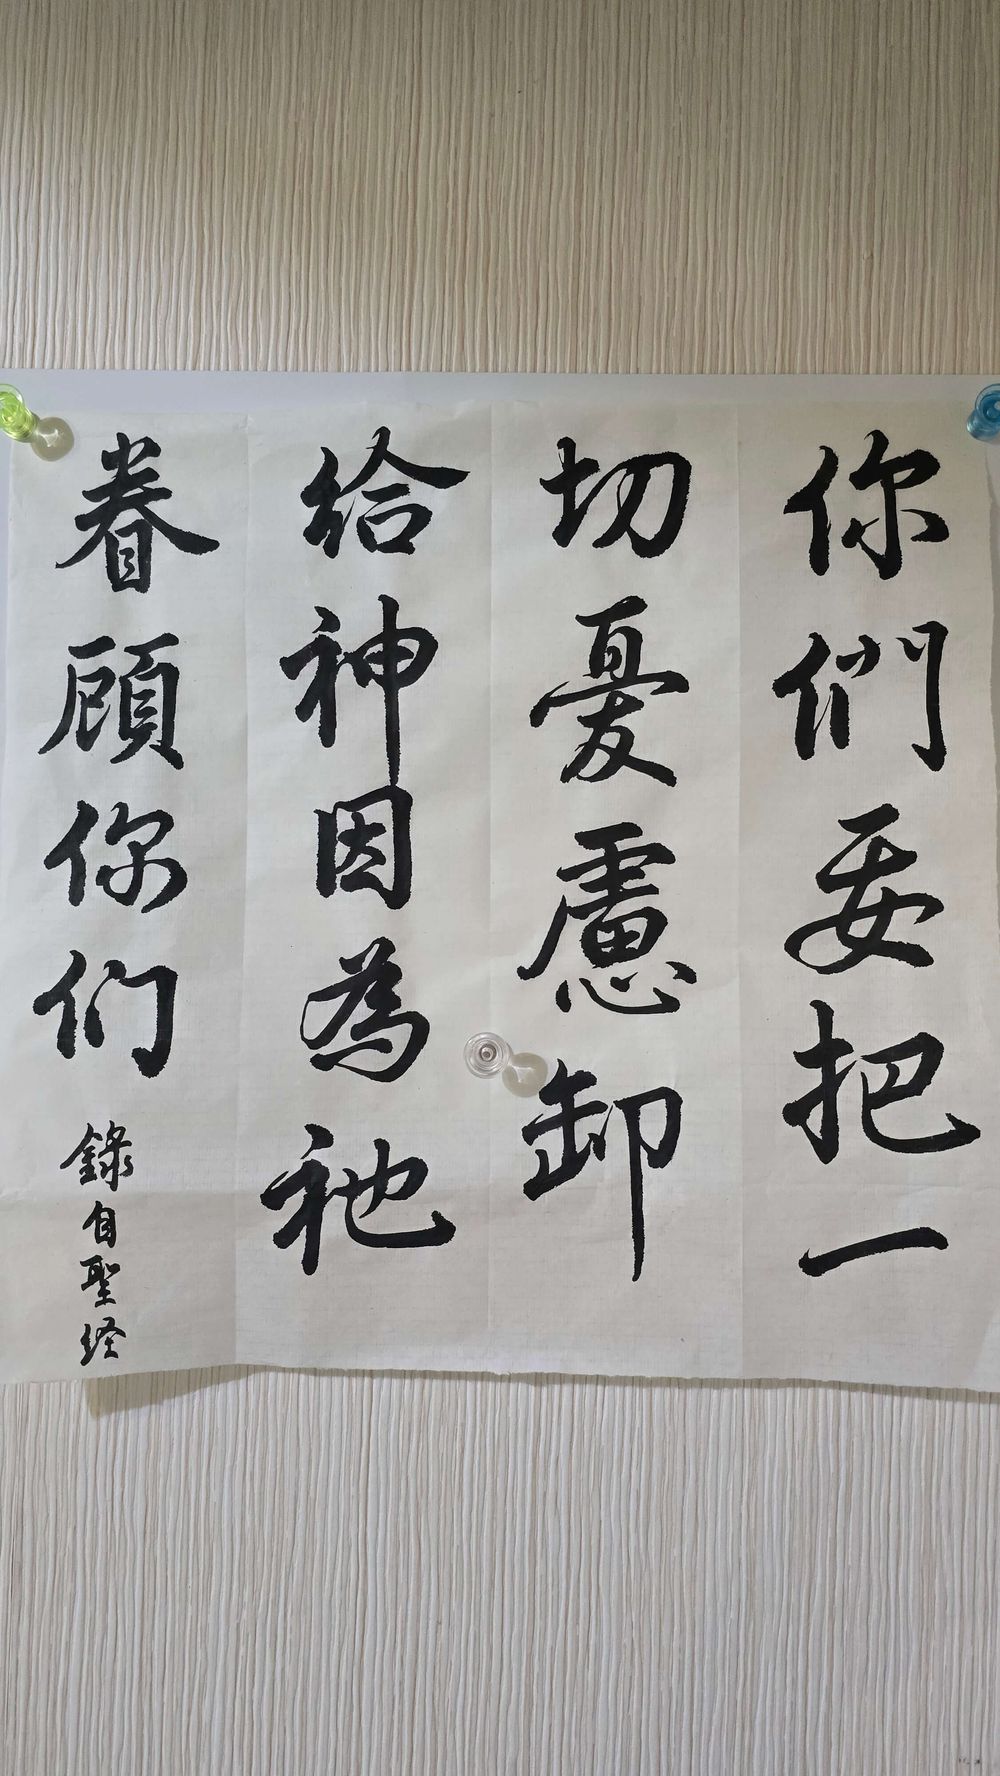 你們要把一
切憂慮卸
給神因為祂
眷顧你们
錄自聖经